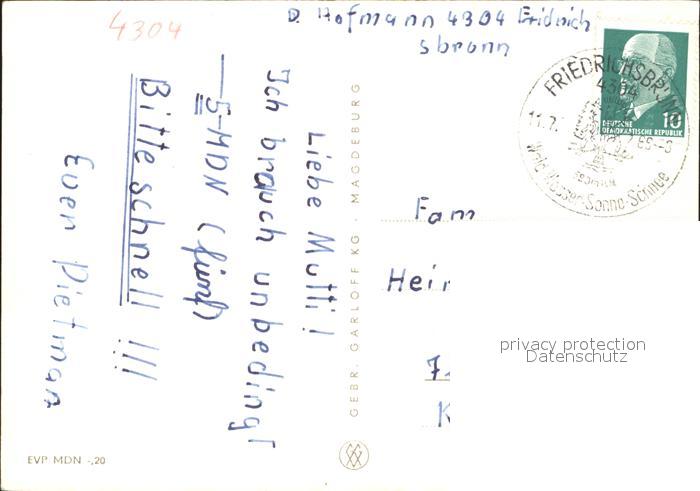 4304
D. Hofmann 4304 Fridrich
sbronn
FRIEDRICHSBRUNN
4304
11.7.
Wald-Wasser-Sonne-Schnee
10
DEUTSCHE
DEMOKRATISCHE REPUBLIK
Liebe Mutti!
Ich brauch unbedingt
5-MDN (fünf)
Bitte schnell!!!
Euer Dietman
GEBR. GARLOFF KG · MAGDEBURG
Fam
Hei
7.
K
privacy protection
Datenschutz
EVP MDN -,20